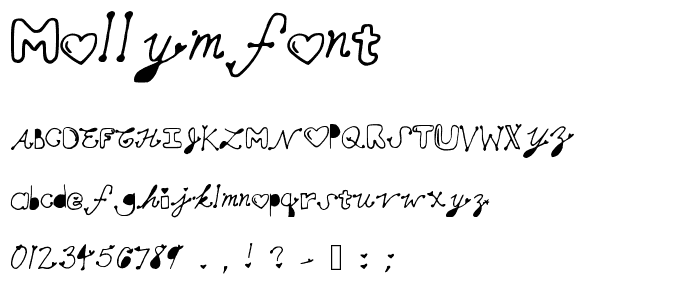 Mollym font
ABCDEFGHIJKLMNOPQRSTUVWXYZ
abcdefghijklmnopqrstuvwxyz
0123456789 . , ! ? - [] : ;